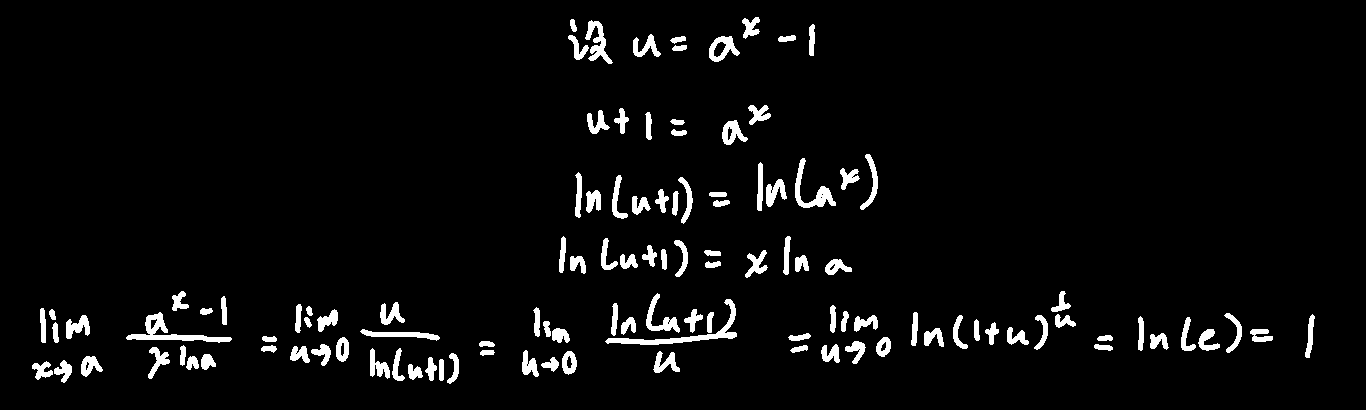 设 u = a^x - 1
u+1 = a^x
ln(u+1) = ln(a^x)
ln(u+1) = x ln a
lim_{x→a} \frac{a^x-1}{x ln a} = lim_{u→0} \frac{u}{ln(u+1)} = lim_{u→0} \frac{ln(u+1)}{u} = lim_{u→0} ln(1+u)^{\frac{1}{u}} = ln(e) = 1